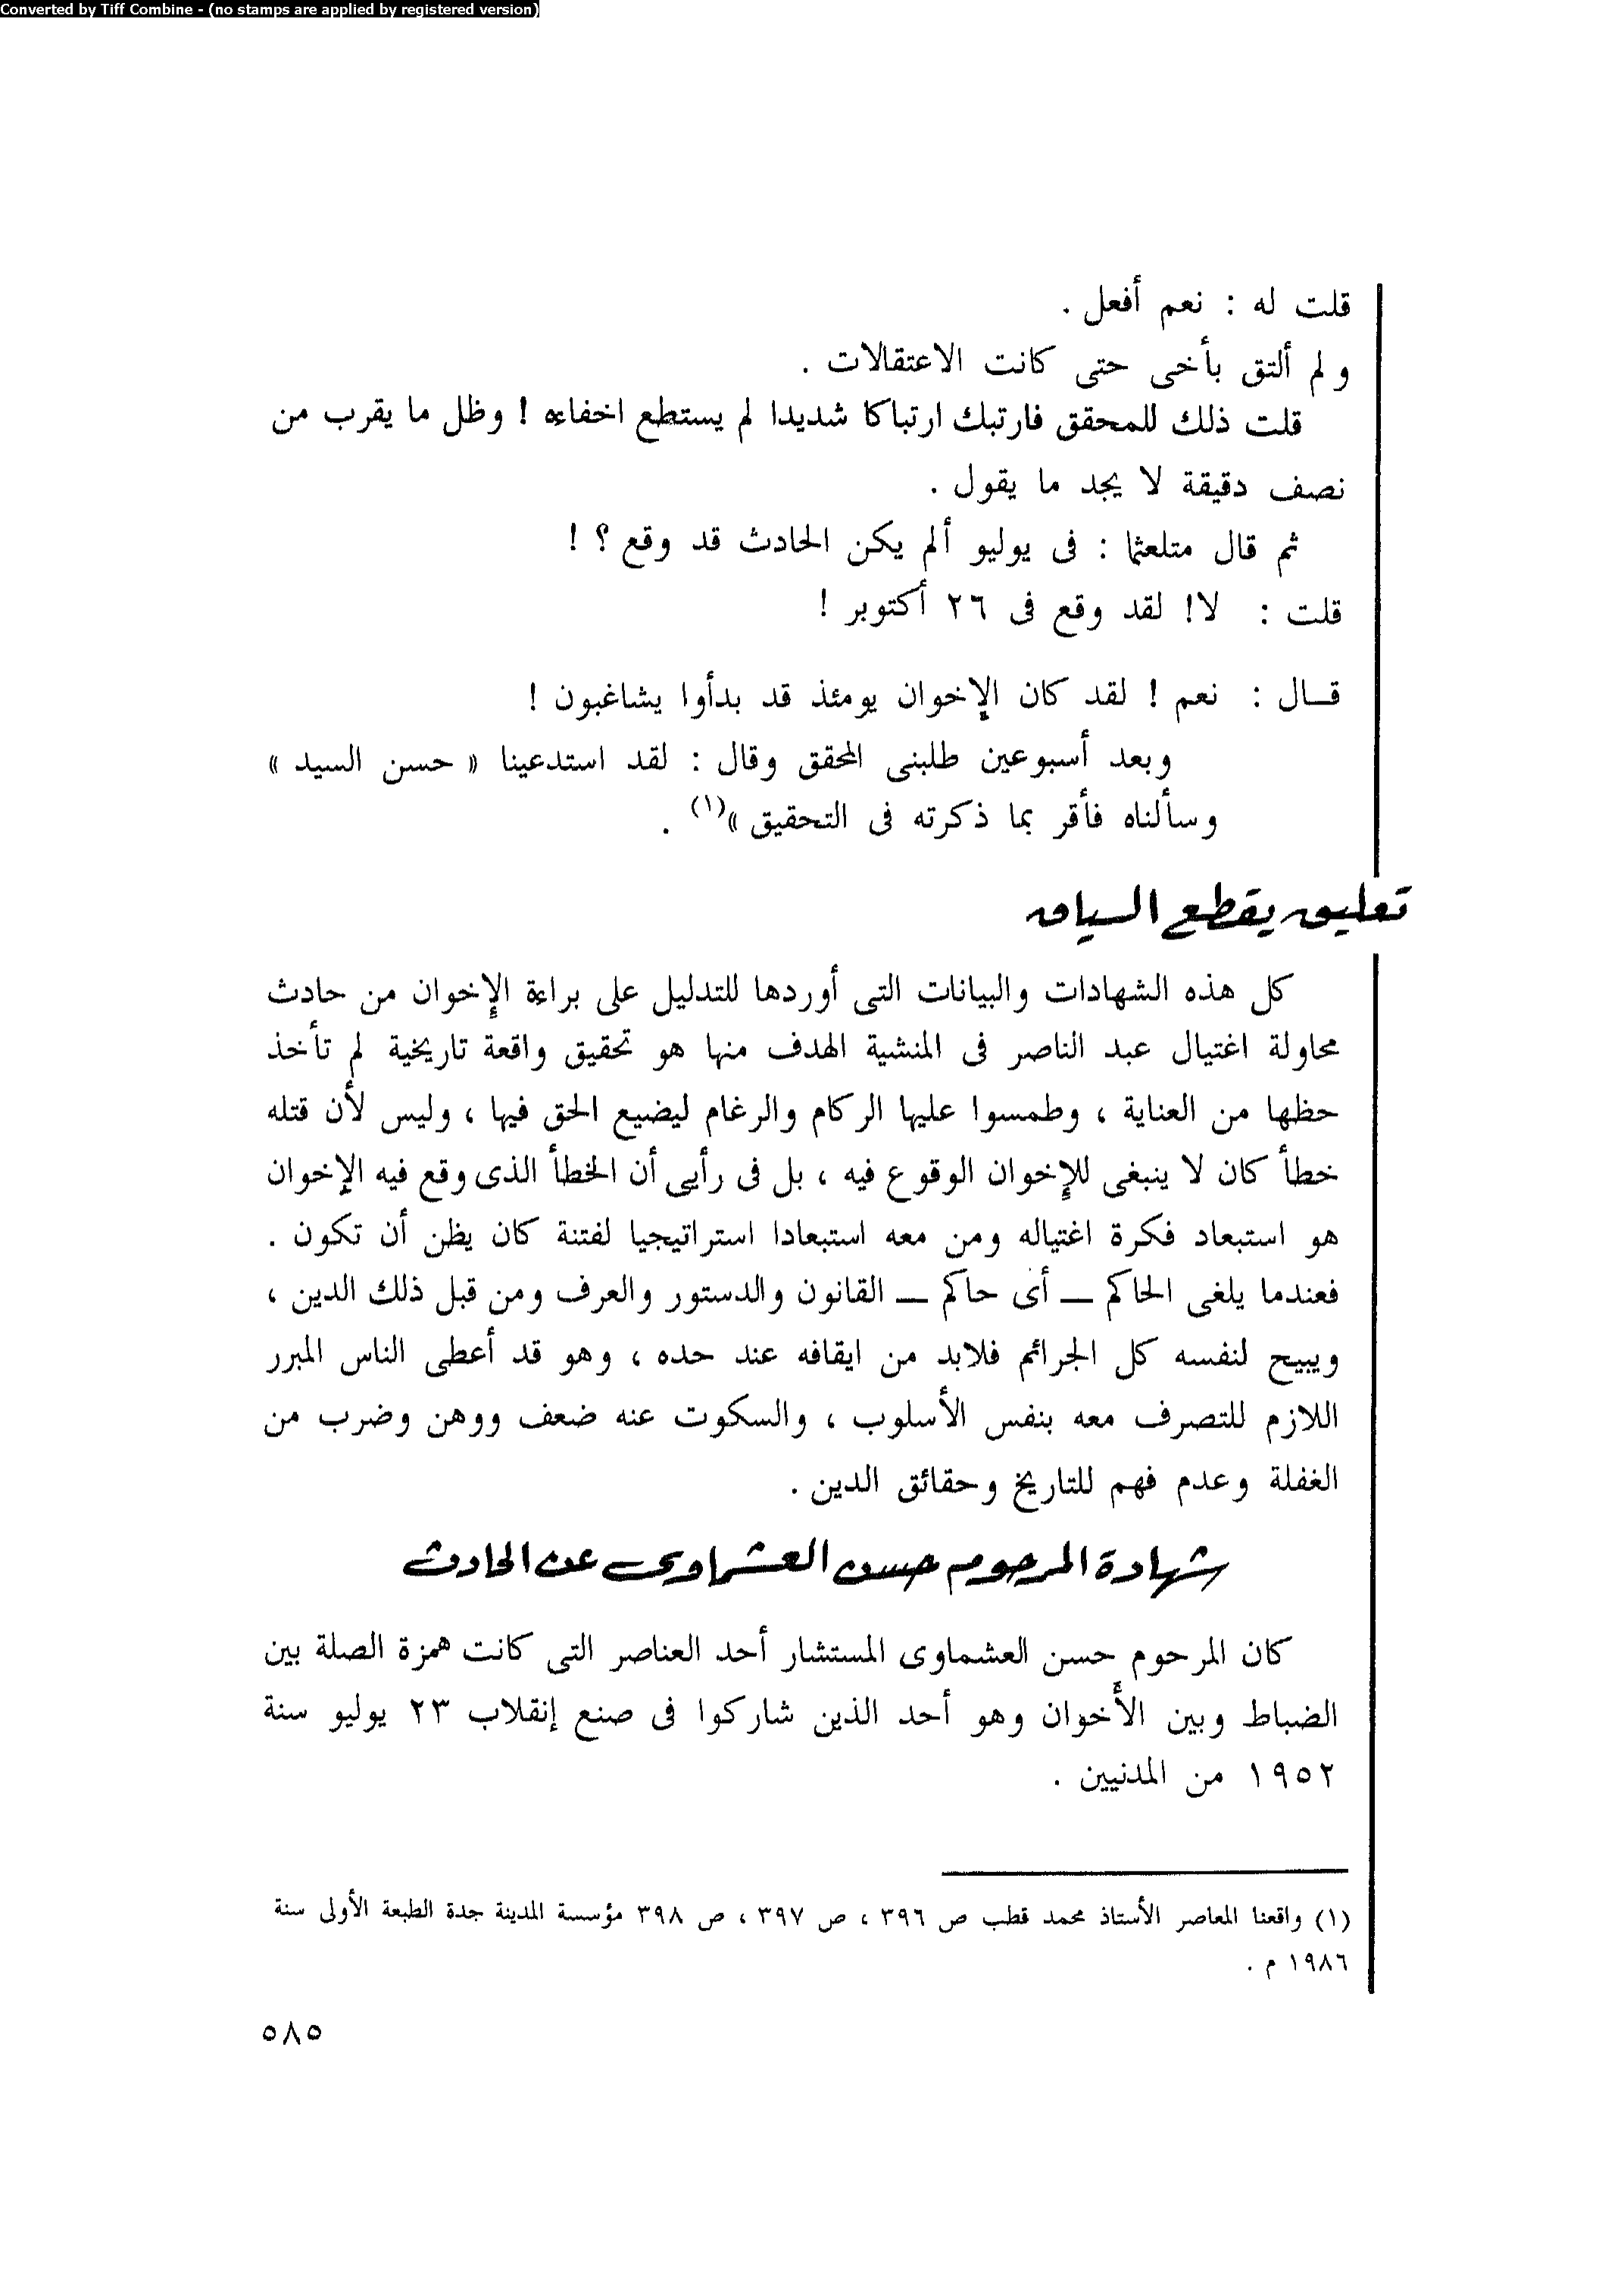 Converted by Tiff Combine - (no stamps are applied by registered version)
قلت له : نعم أفعل .
ولم ألتق بأخى حتى كانت الاعتقالات .
قلت ذلك للمحقق فارتبك ارتباكا شديدا لم يستطع اخفاءه ! وظل ما يقرب من
نصف دقيقة لا يجد ما يقول .
ثم قال متلعثما : فى يوليو ألم يكن الحادث قد وقع ؟ !
قلت : لا! لقد وقع فى ٢٦ أكتوبر !
قـال : نعم ! لقد كان الإخوان يومئذ قد بدأوا يشاغبون !
وبعد أسبوعين طلبنى المحقق وقال : لقد استدعينا « حسن السيد »
وسألناه فأقر بما ذكرته فى التحقيق »(١) .
تعليق يقطع السياق
كل هذه الشهادات والبيانات التى أوردها للتدليل على براءة الإخوان من حادث
محاولة اغتيال عبد الناصر فى المنشية الهدف منها هو تحقيق واقعة تاريخية لم تأخذ
حظها من العناية ، وطمسوا عليها الركام والرغام ليضيع الحق فيها ، وليس لأن قتله
خطأ كان لا ينبغى للإخوان الوقوع فيه ، بل فى رأيى أن الخطأ الذى وقع فيه الإخوان
هو استبعاد فكرة اغتياله ومن معه استبعادا استراتيجيا لفتنة كان يظن أن تكون .
فعندما يلغى الحاكم ــ أى حاكم ــ القانون والدستور والعرف ومن قبل ذلك الدين ،
ويبيح لنفسه كل الجرائم فلابد من ايقافه عند حده ، وهو قد أعطى الناس المبرر
اللازم للتصرف معه بنفس الأسلوب ، والسكوت عنه ضعف ووهن وضرب من
الغفلة وعدم فهم للتاريخ وحقائق الدين .
شهادة المرحوم حسن العشماوى عن الحادث
كان المرحوم حسن العشماوى المستشار أحد العناصر التى كانت همزة الصلة بين
الضباط وبين الأخوان وهو أحد الذين شاركوا فى صنع إنقلاب ٢٣ يوليو سنة
١٩٥٢ من المدنيين .
(١) واقعنا المعاصر الأستاذ محمد قطب ص ٣٩٦ ، ص ٣٩٧ ، ص ٣٩٨ مؤسسة المدينة جدة الطبعة الأولى سنة
١٩٨٦ م .
٥٨٥